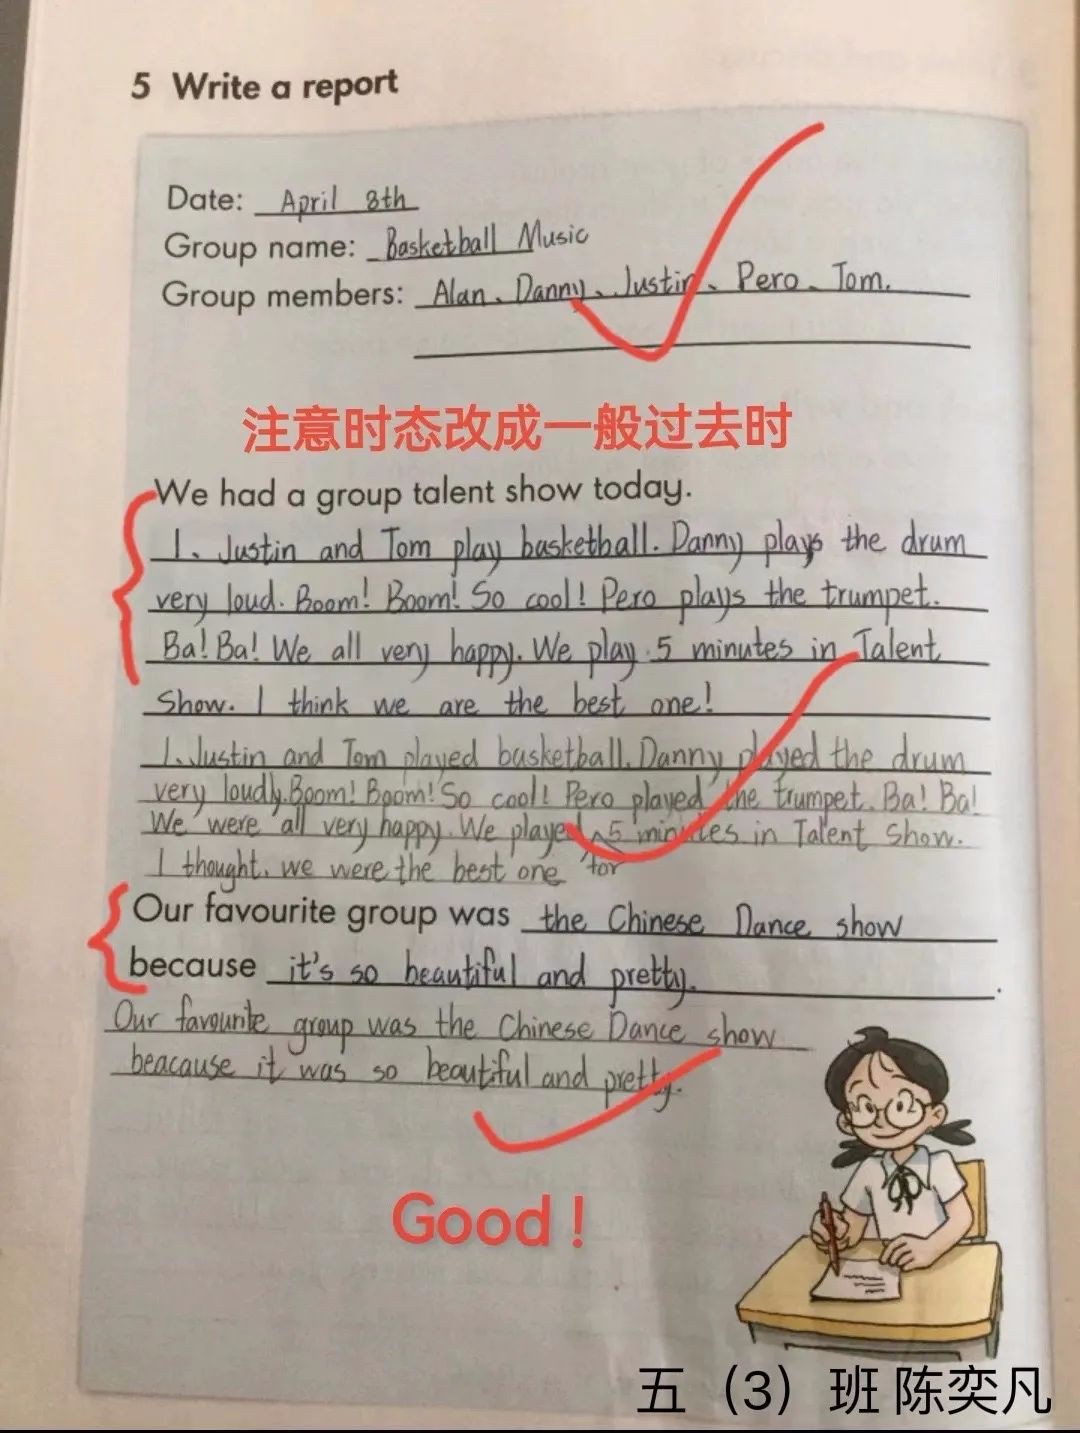 5 Write a report
Date: April 8th
Group name: Basketball Music
Group members: Alan、Danny、Justin、Pero、Tom.
注意时态改成一般过去时
We had a group talent show today.
I、Justin and Tom play basketball. Danny plays the drum
very loud. Boom! Boom! So cool! Pero plays the trumpet.
Ba! Ba! We all very happy. We play 5 minutes in Talent
Show. I think we are the best one!
I、Justin and Tom played basketball. Danny played the drum
very loudly. Boom! Boom! So cool! Pero played the trumpet. Ba! Ba!
We were all very happy. We played ^ 5 minutes in Talent Show.
I thought, we were the best one for
Our favourite group was the Chinese Dance show
because it's so beautiful and pretty. .
Our favourite group was the Chinese Dance show
beacause it was so beautiful and pretty.
Good！
五（3）班 陈奕凡